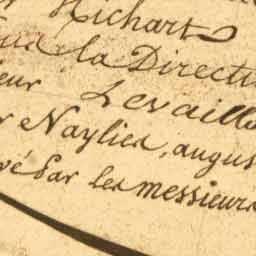 Richart
la Directi
eur Levaill
r Naylies, augus
vé Par les messieurs